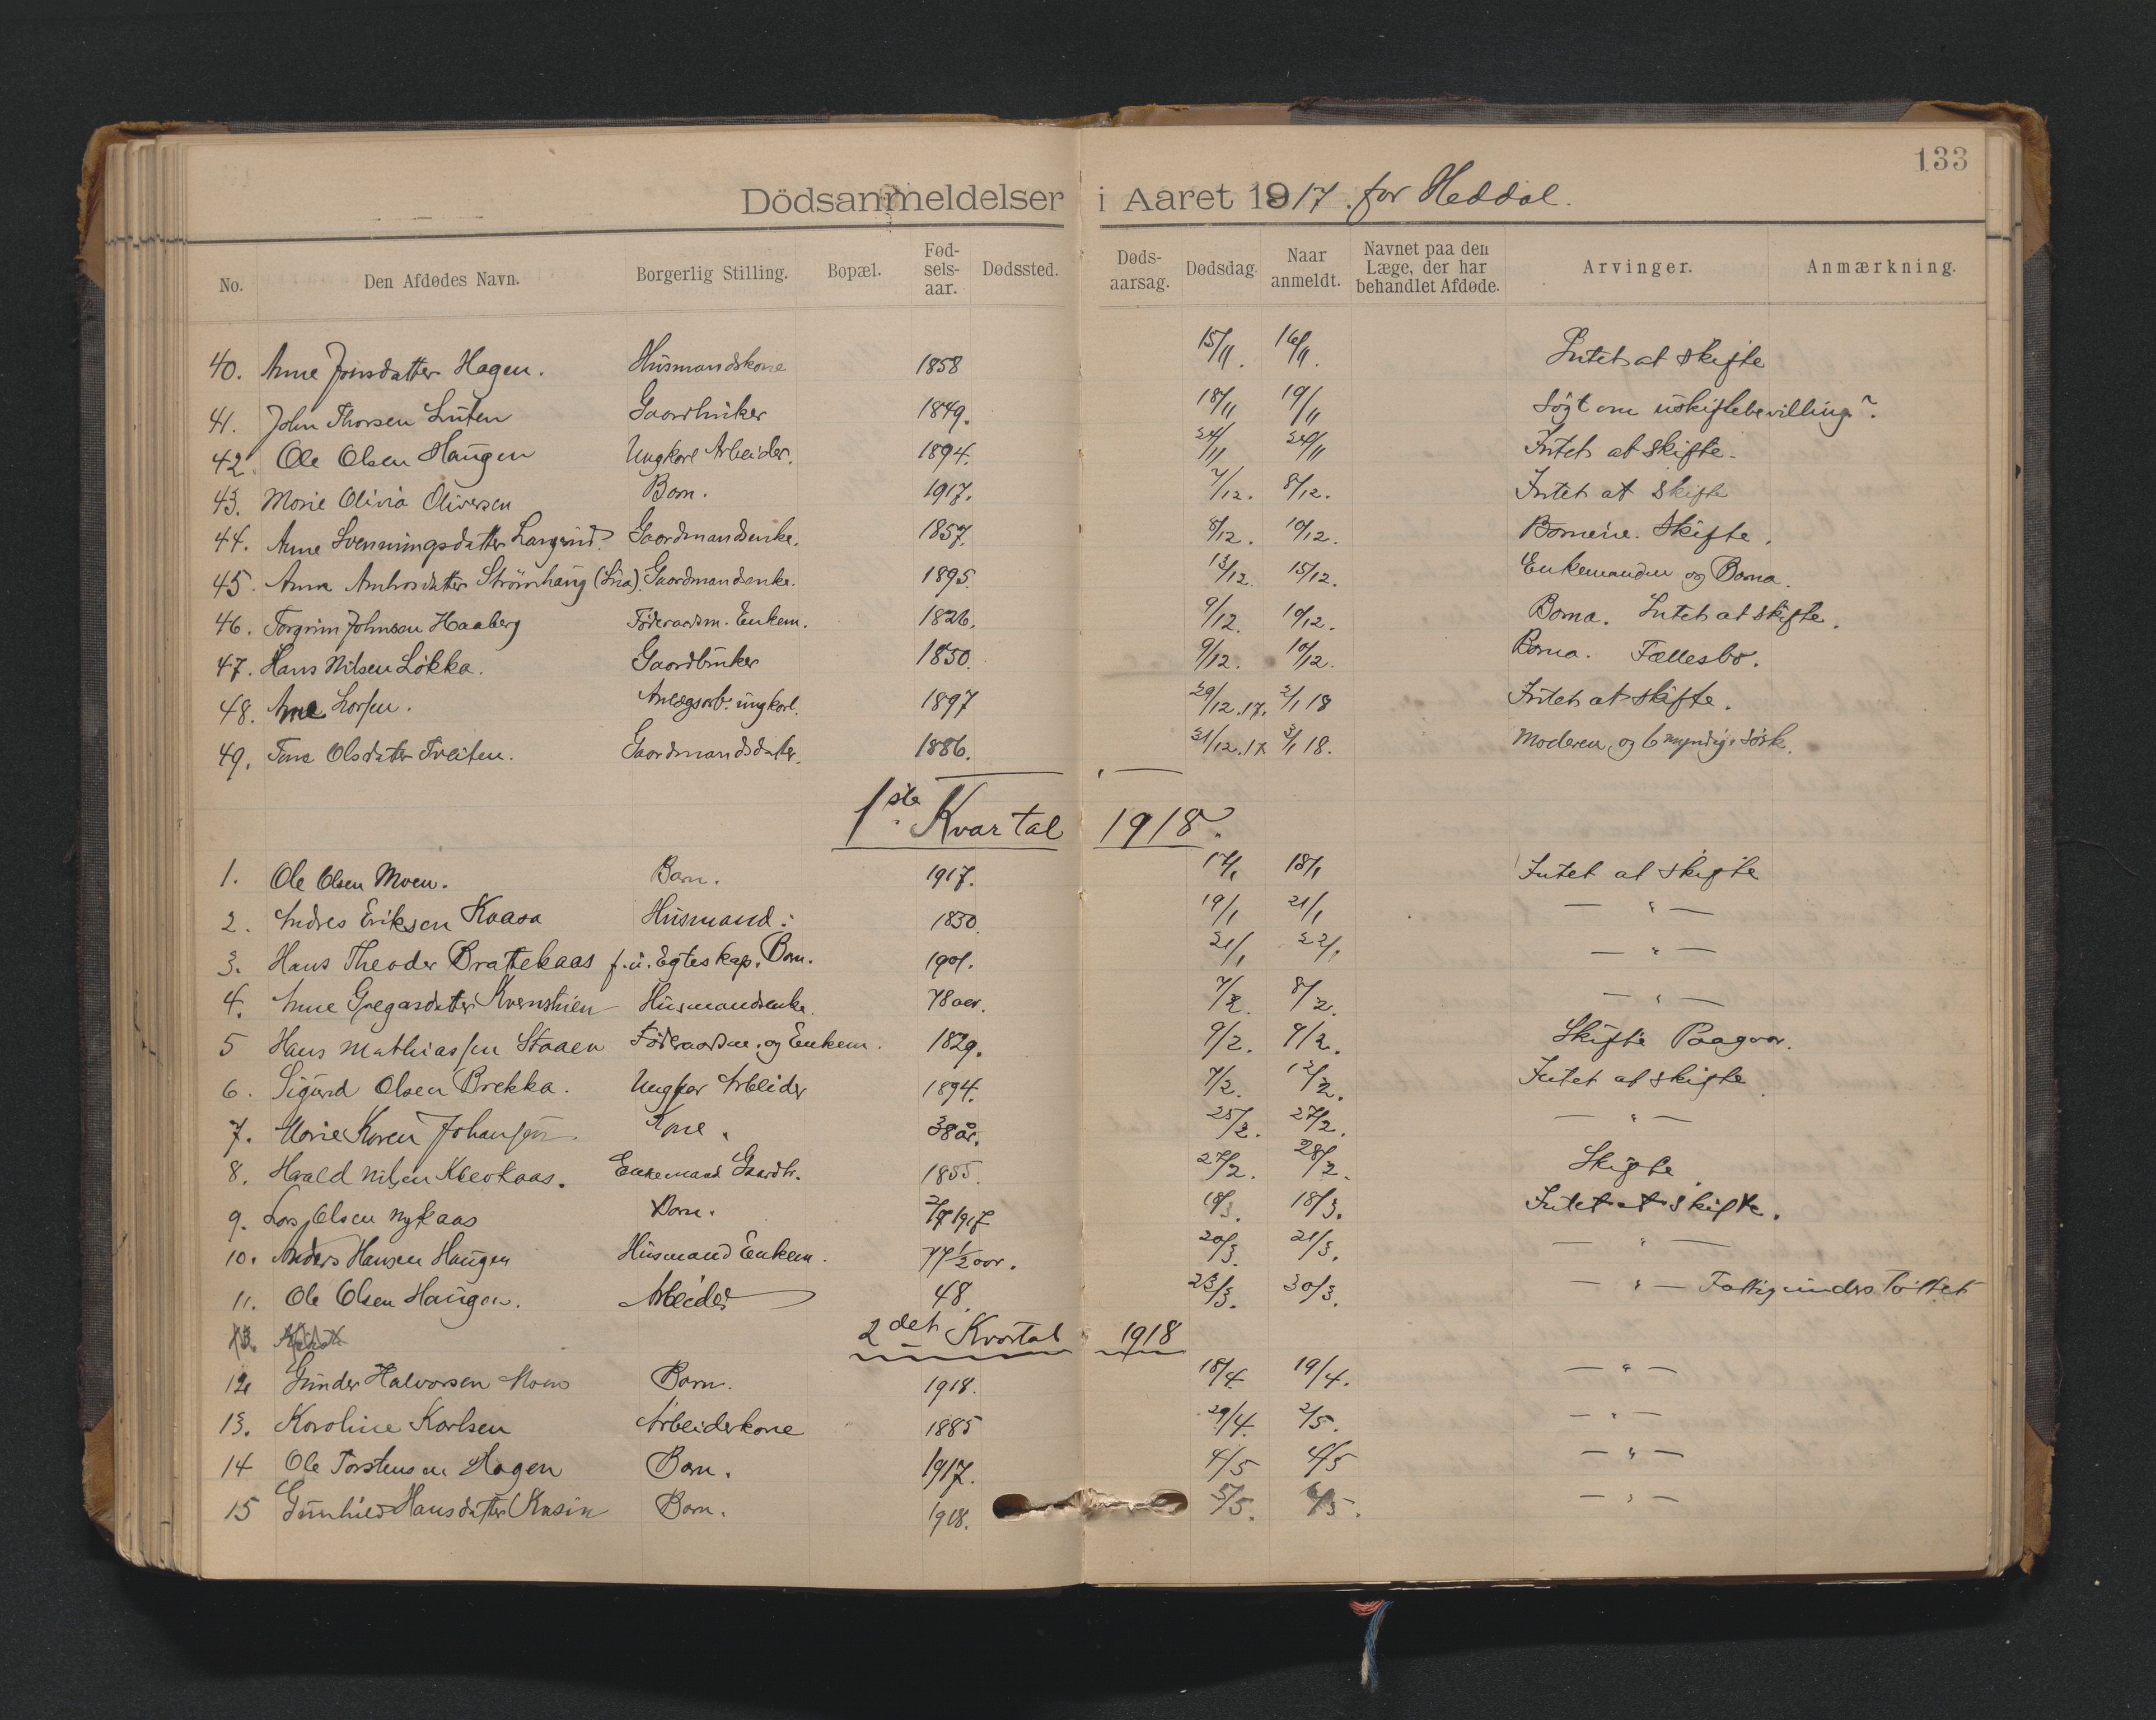 133
Dödsanmeldelser i Aaret 1917. for Heddal.
No. Den Afdødes Navn. Borgerlig Stilling. Bopæl. Fød-sels-aar. Dødssted. Døds-aarsag. Dødsdag. Naar anmeldt. Navnet paa den Læge, der har behandlet Afdøde. Arvinger. Anmærkning.
40. Anne Jonsdatter Hagen. Husmandskone 1858 15/11. 16/11. Intet at skifte
41. John Thorsen Luten Gaardbruker 1849. 18/11 19/11 Søgt om uskiftebevilling.
42. Ole Olsen Haugen Ungkarl Arbeider. 1894. 24/11 24/11 Intet at skifte.
43. Marie Olivia Oliversen Barn. 1917. 7/12. 8/12. Intet at skifte
44. Anne Svenningsdatter Gaardmandsenke. 1857. 8/12. 10/12. Børnene. Skifte.
45. Anna Strømhaug Gaardmandsenke. 1895. 13/12. 15/12. Enkemanden og Barna.
46. Torgrim Johnsen Haaberg Føderaadsm. Enkem. 1826. 9/12. 10/12. Barna. Intet at skifte.
47. Hans Nilsen Løkka. Gaardbruker 1850. 9/12. 10/12. Barna. Fællesbo.
48. Arne Larsen. Anlægsarb. ungkarl. 1897 29/12.17. 2/1 18 Intet at skifte.
49. Tone Olsdatter Tveiten. Gaardmandsdatter. 1886. 31/12.17. 3/1 18. Moderen og 6 myndige søsk.
1ste Kvartal 1918.
1. Ole Olsen Moen. Barn. 1917. 17/1 18/1 Intet at skifte
2. Andres Eriksen Kaasa Husmand. 1830. 19/1 21/1 — " —
3. Hans Theodor Brattekaas f. u. Egteskap. Barn. 1901. 21/1 22/1 — " —
4. Anne Gregarsdatter Husmandsenke. 78 aar. 7/2. 8/2. — " —
5 Hans Mathiassen Staaen Føderaadsm. og Enkem. 1829. 9/2. 9/2. Skifte Paagaar.
6. Sigurd Olsen Brekka. Ungkar Arbeider 1894. 7/2. 12/2. Intet at skifte.
7. Marie Karen Johansen. Kone. 38 år. 25/2. 27/2. — " —
8. Harald Nilsen Enkemand Gaardbr. 1855. 27/2. 28/2. Skifte
9. Lars Olsen Nykaas Barn. 2/7 1917 18/3. 18/3. Intet at skifte.
10. Anders Hansen Haugen Husmand Enkem. 77 1/2 aar. 20/3. 21/3. — " —
11. Ole Olsen Haugen. Arbeider 48. 23/3. 30/3. — " — Fattigunderstøttet
13. 2det Kvartal 1918
12. Gunder Halvorsen Moen Barn. 1918. 18/4. 19/4. — " —
13. Karoline Karlsen Arbeiderkone 1885 29/4. 2/5. — " —
14 Ole Torstensen Hagen Barn. 1917. 4/5 4/5 — " —
15 Gunhild Hansdatter Kasin Barn. 1918. 5/5. 6/5. — " —